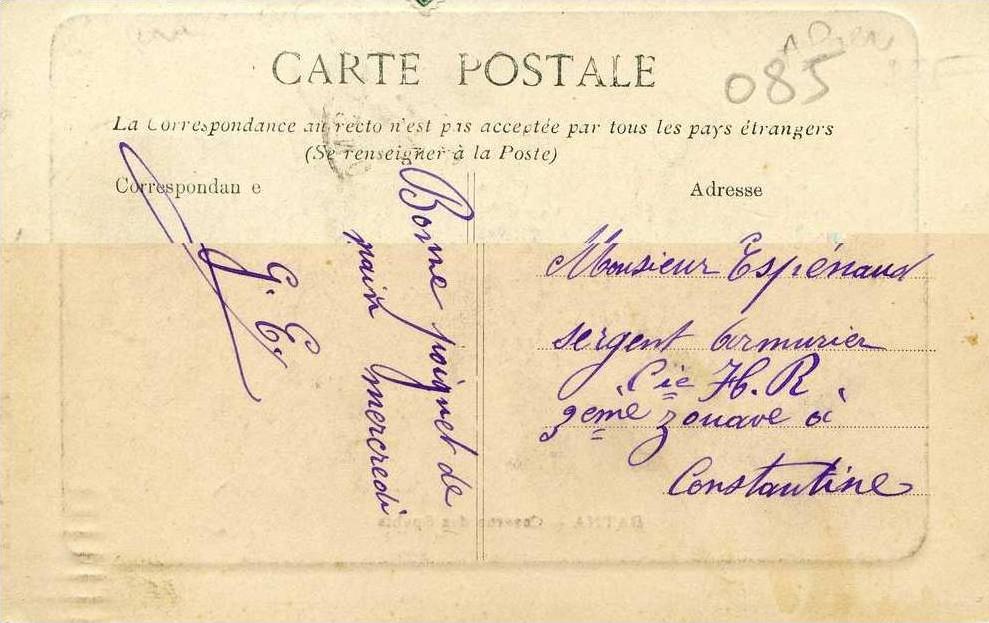 085
CARTE POSTALE
La Correspondance au recto n'est pas acceptée par tous les pays étrangers
(Se renseigner à la Poste)
Correspondan e
Adresse
Bonne poignet de
main mercredi
G. E.
Monsieur Espénaud
sergent armurier
Cie H. R
3ème zouave à
Constantine
BATNA - Caserne des Spahis